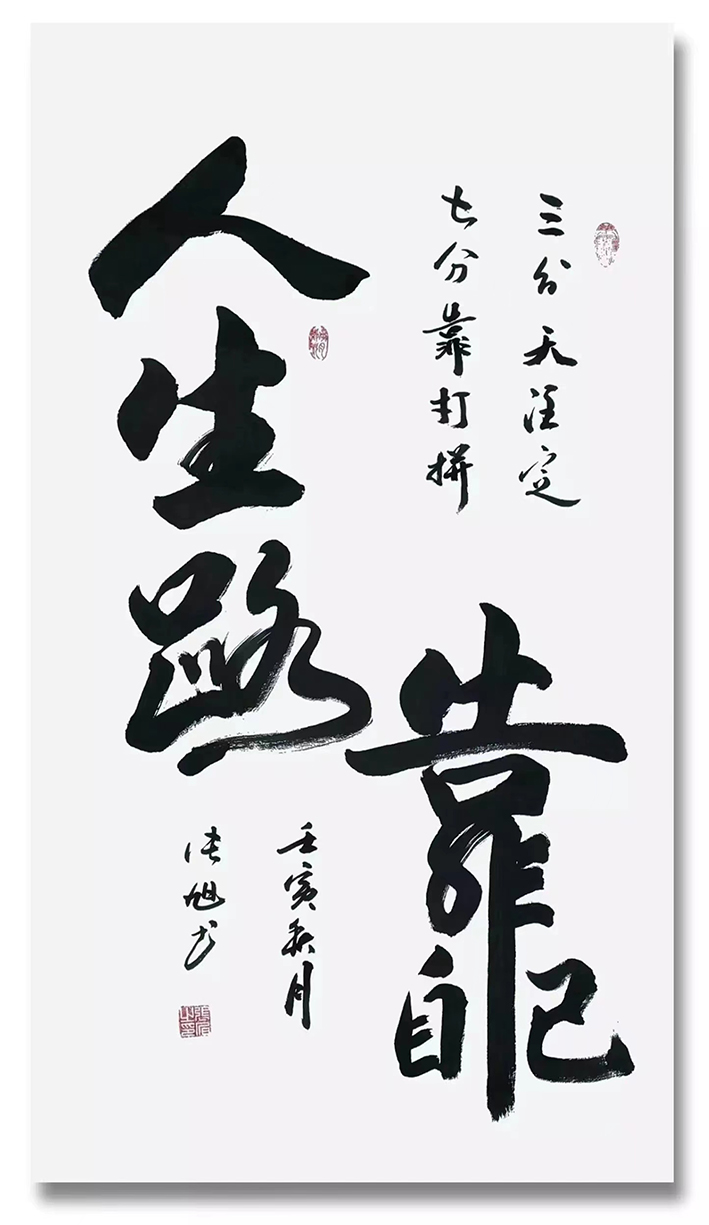 三分天注定
七分靠打拼
人生路
靠自己
壬寅秋月
张旭书